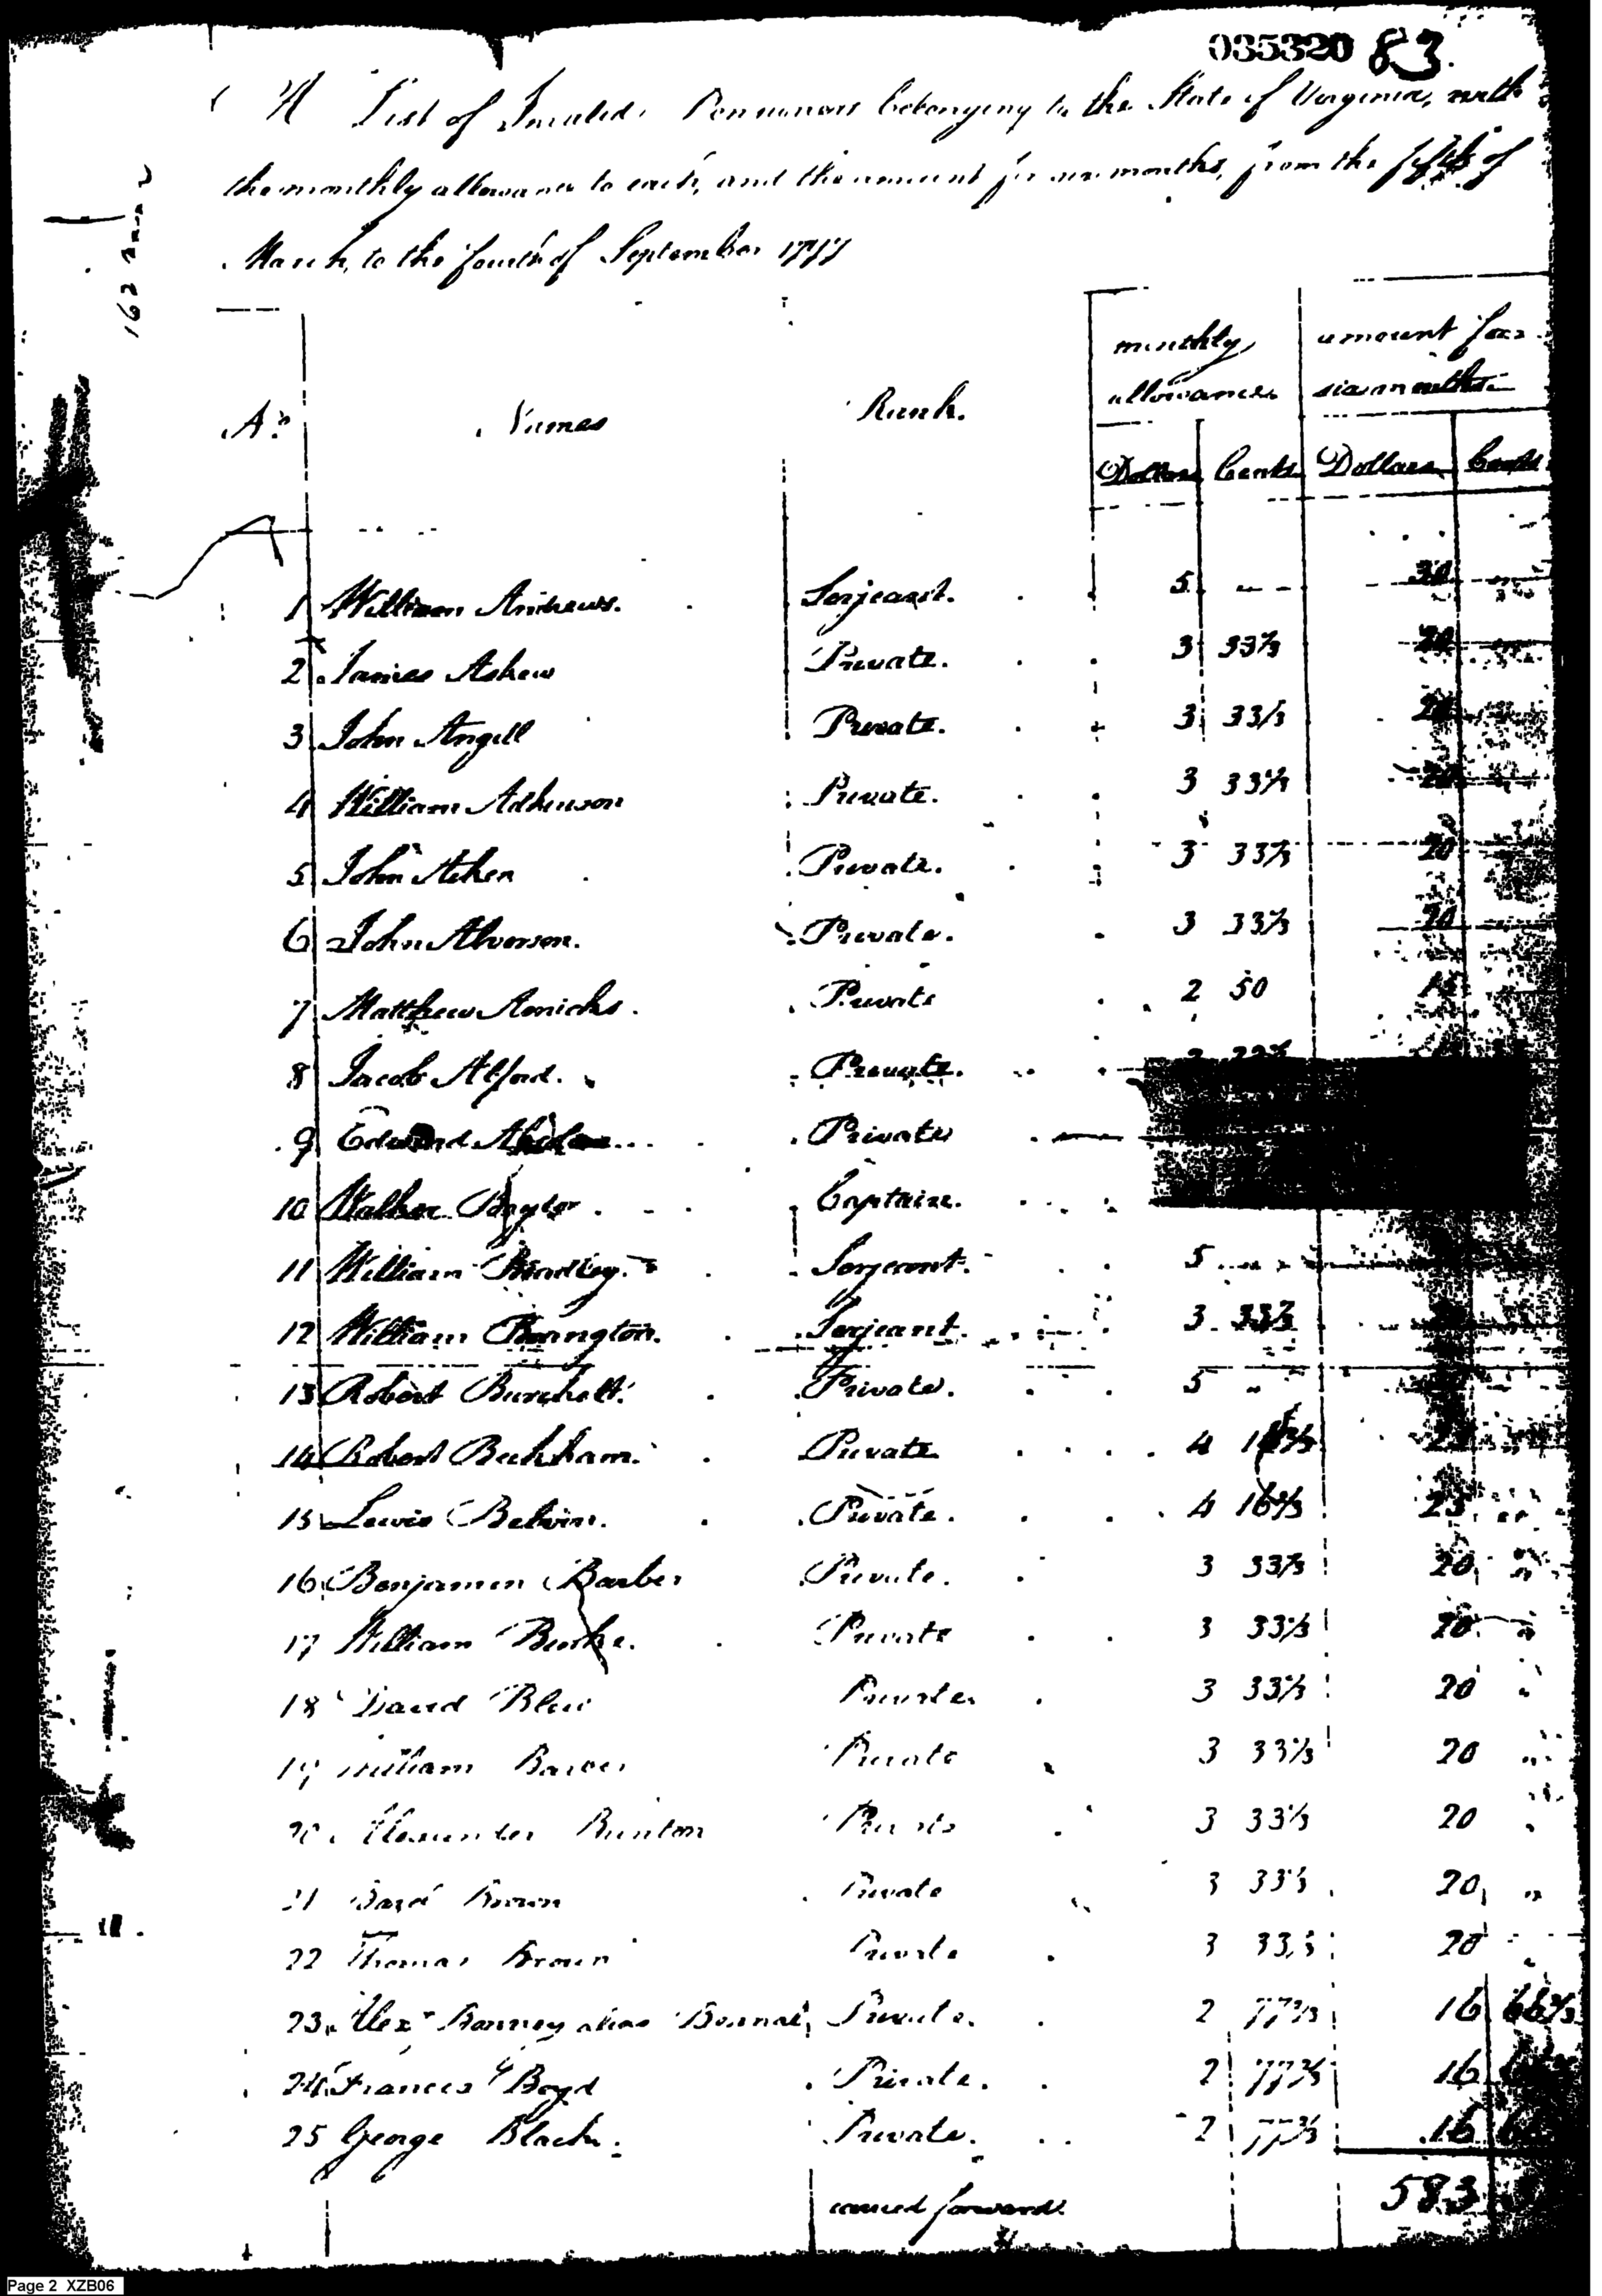 035320 83.
A List of Invalid Pensioners belonging to the State of Virginia, with
the monthly allowance to each, and the amount for six months, from the fifth of
March, to the fourth of September 1797
monthly allowance amount for six months
No Names Rank. Dollars Cents Dollars Cents
1 William Andrews. Serjeant. 5 - - 30
2 James Askew Private. 3 33⅓ 20
3 John Angell Private. 3 33⅓ 20
4 William Adkinson Private. 3 33⅓ 20
5 John Aiken Private. 3 33⅓ 20
6 John Alverson. Private. 3 33⅓ 20
7 Matthew Amicks. Private 2 50 15
8 Jacob Alford. Private.
9 Edward Private
10 Walker Baylor Captain.
11 William Bradley. Serjeant. 5
12 William Serjeant. 3 33⅓
13 Robert Burchett. Private. 5 "
14 Robert Beckham. Private 4 16⅔ 25
15 Lewis Belvin. Private. 4 16⅔ 25
16 Benjamin Barber Private. 3 33⅓ 20 "
17 William Burke. Private 3 33⅓ 20 "
18 David Blew Private. 3 33⅓ 20 "
19 William Private 3 33⅓ 20 "
20 Alexander Bunton Private 3 33⅓ 20 "
21 Brown Private 3 33⅓ 20 "
22 Thomas Brown Private 3 33⅓ 20
23 Alexr Bonney alias Private. 2 77⅔ 16 66⅔
24 Frances Boyd Private. 2 77⅔ 16
25 George Black. Private. 2 77⅔ 16
carried forward. 583
162
Page 2 XZB06